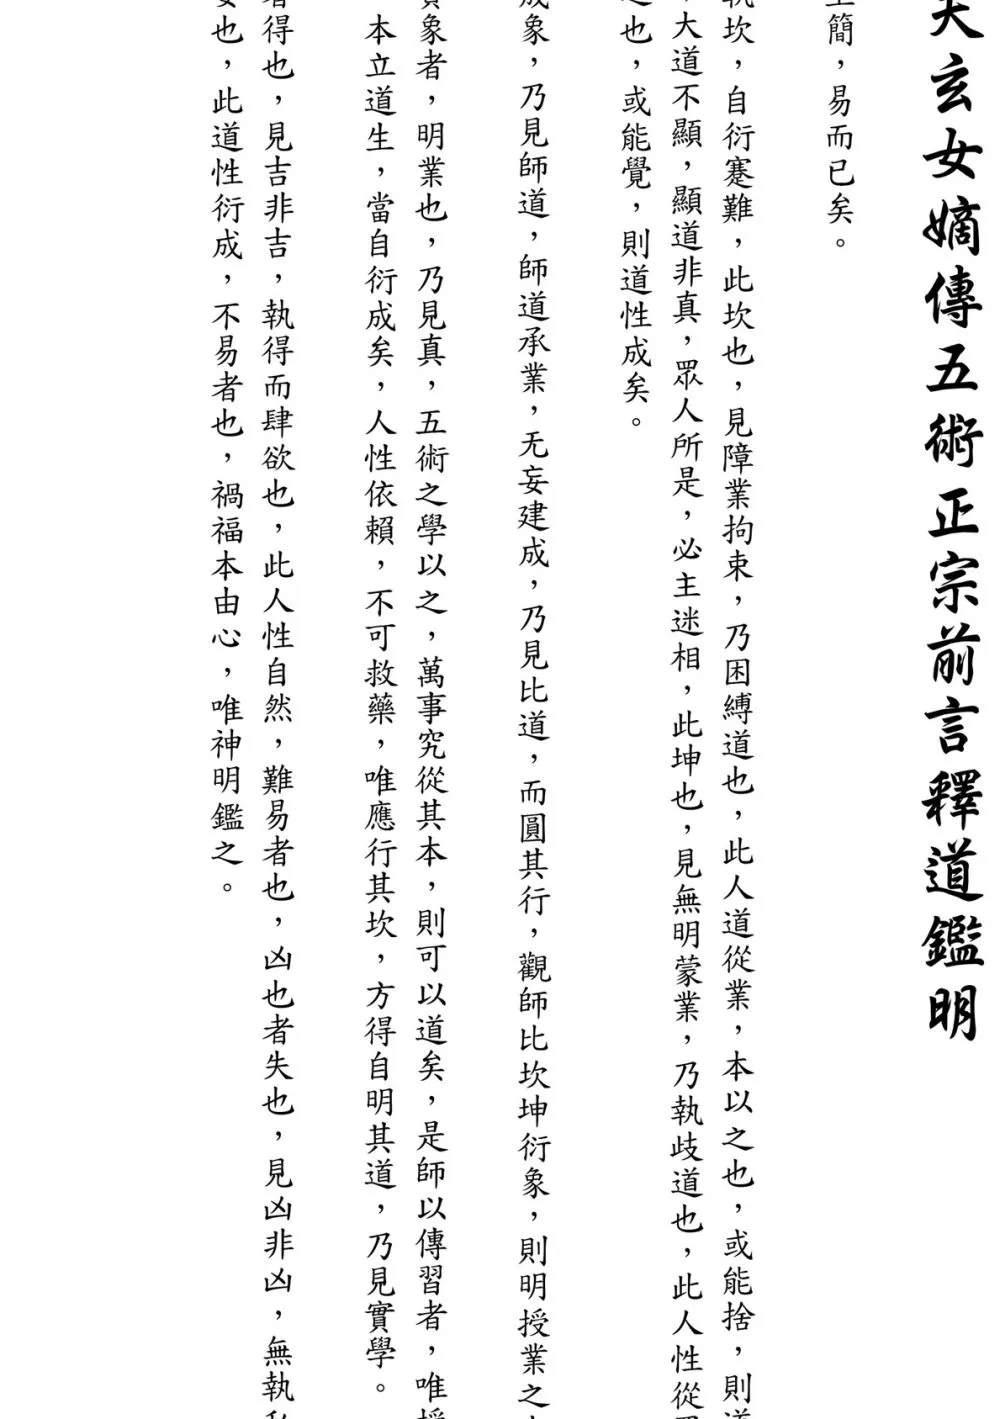 玄女嫡傳五術正宗前言釋道鑑明
簡，易而已矣。
執坎，自衍蹇難，此坎也，見障業拘束，乃困縛道也，此人道從業，本以之也，或能捨，則道
大道不顯，顯道非真，眾人所是，必主迷相，此坤也，見無明蒙業，乃執歧道也，此人性從
也，或能覺，則道性成矣。
成象，乃見師道，師道承業，无妄建成，乃見比道，而圓其行，觀師比坎坤衍象，則明授業之
象者，明業也，乃見真，五術之學以之，萬事究從其本，則可以道矣，是師以傳習者，唯授
本立道生，當自衍成矣，人性依賴，不可救藥，唯應行其坎，方得自明其道，乃見實學。
者得也，見吉非吉，執得而肆欲也，此人性自然，難易者也，凶也者失也，見凶非凶，無執私
也，此道性衍成，不易者也，禍福本由心，唯神明鑑之。